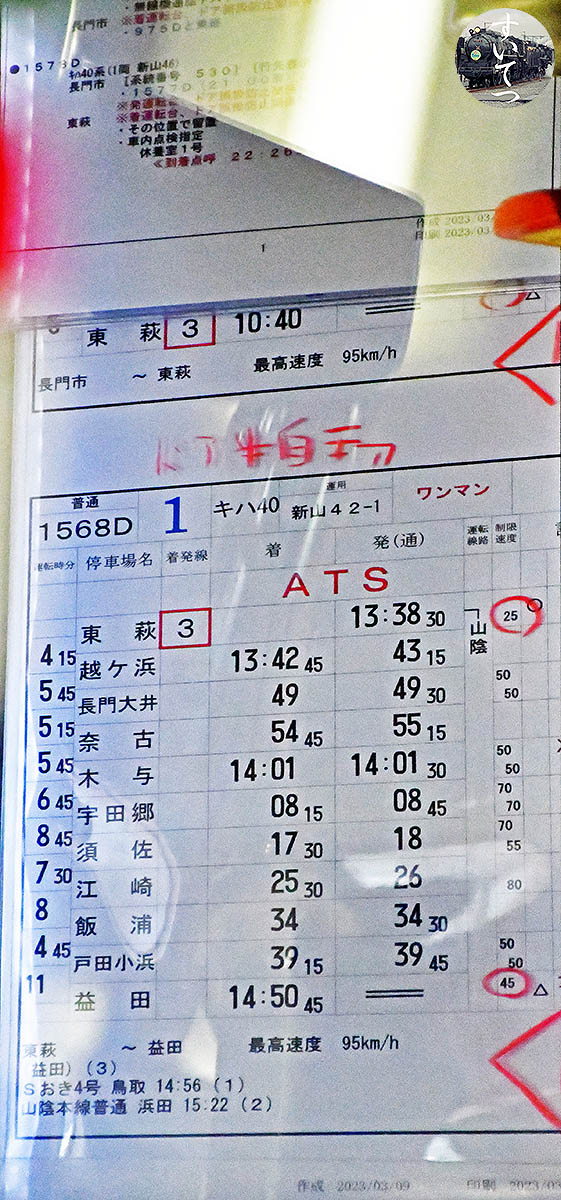 長門市
・975Dと乗継
すいてつ
●1578D
キハ40系(1両 新山46)
長門市 [系統番号 530]
・1577D (2)
※発運転台、ドア誤扱防止
東萩 ※着運転台、ドア誤扱防止
・その位置で留置
・車内点検指定
休養室1号
≪到着点呼 22:26
作成 2023/03
印刷 2023/03
1
東萩 3 10:40
長門市 ~ 東萩 最高速度 95km/h
ドア半自動
普通 運用
1568D 1 キハ40 新山42-1 ワンマン
運転時分 停車場名 着発線 着 発(通) 運転線路 制限速度
ATS
東萩 3 13:38 30 山陰 25
4 15 越ケ浜 13:42 45 43 15
5 45 長門大井 49 49 30 50 50
5 15 奈古 54 45 55 15
5 45 木与 14:01 14:01 30 50 50
6 45 宇田郷 08 15 08 45 70 70
8 45 須佐 17 30 18 70 55
7 30 江崎 25 30 26 80
8 飯浦 34 34 30
4 45 戸田小浜 39 15 39 45 50 50
11 益田 14:50 45 45 △
東萩 ~ 益田 最高速度 95km/h
益田) (3)
Sおき4号 鳥取 14:56 (1)
山陰本線普通 浜田 15:22 (2)
作成 2023/03/09 印刷 2023/03